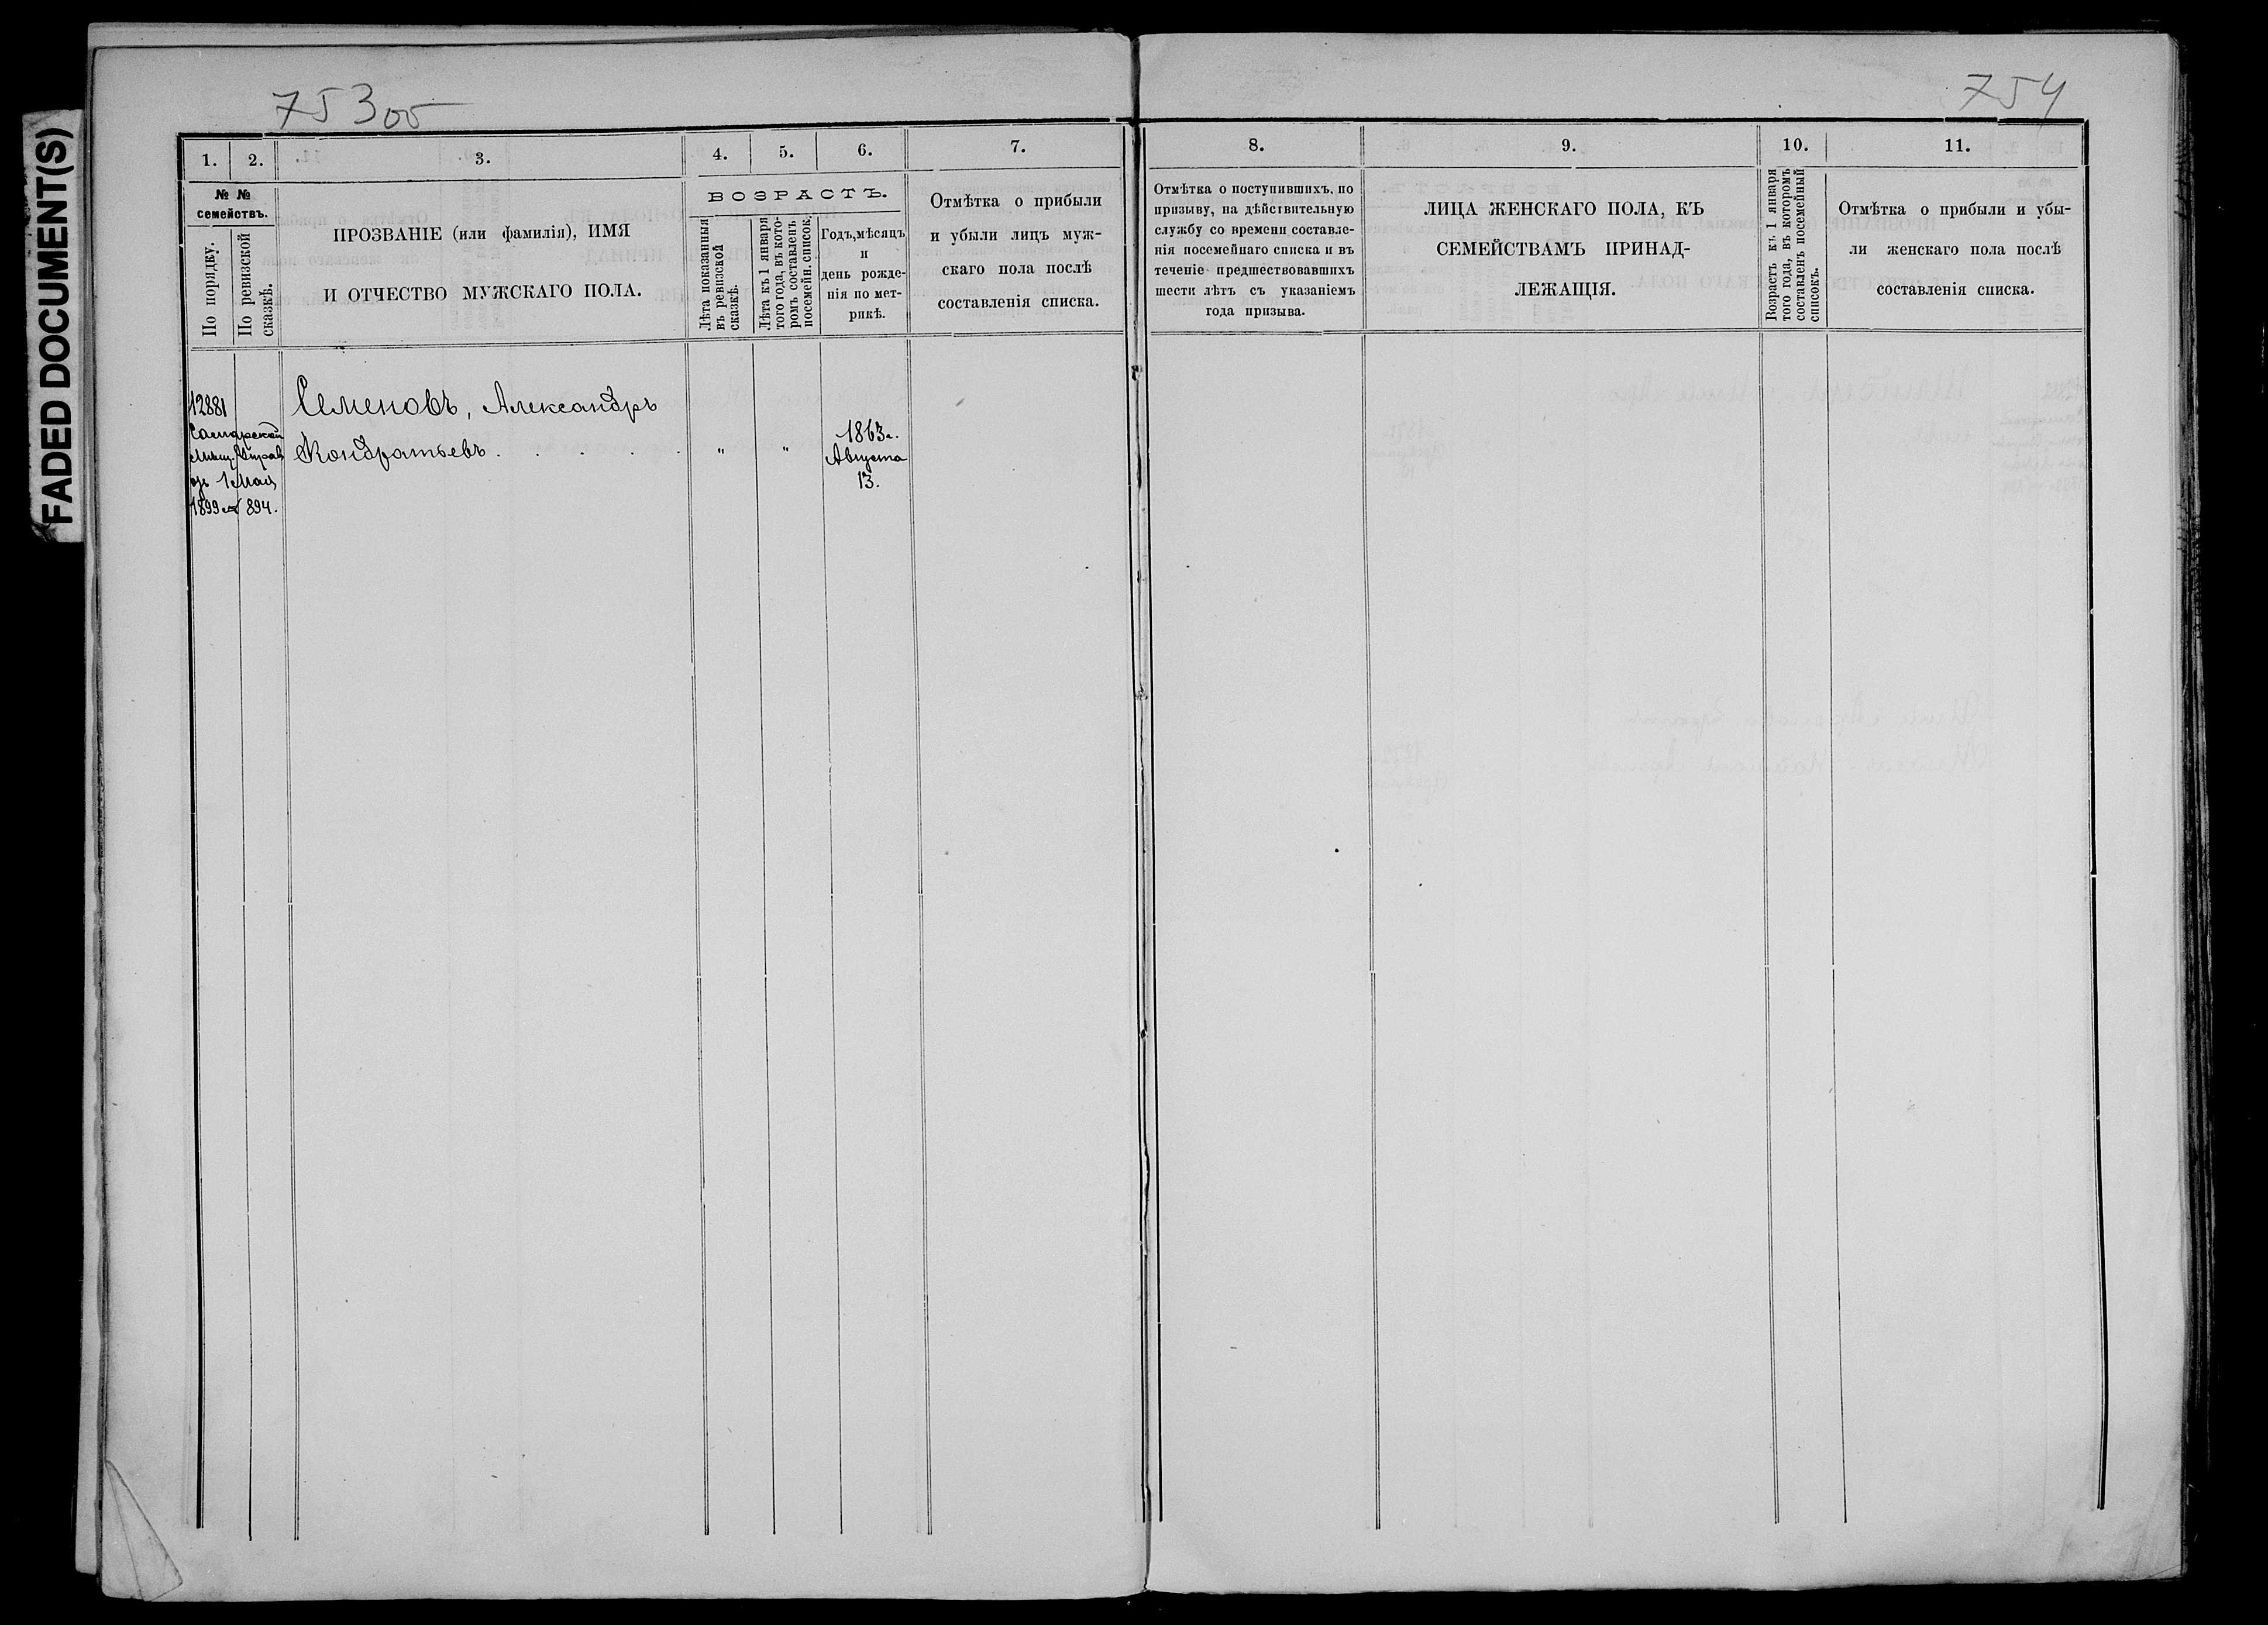 FADED DOCUMENT(S)
753 об
754
1. 2. 3. 4. 5. 6. 7.
№ №
семействъ.
По порядку.
По ревизской
сказкѣ.
ПРОЗВАНІЕ (или фамилія), ИМЯ
И ОТЧЕСТВО МУЖСКАГО ПОЛА.
ВОЗРАСТЪ.
Лѣта показанныя
въ ревизской
сказкѣ.
Лѣта къ 1 января
того года, въ кото-
ромъ составленъ
посемейн. список.
Годъ, мѣсяцъ
и
день рожде-
нія по мет-
рикѣ.
Отмѣтка о прибыли
и убыли лицъ муж-
скаго пола послѣ
составленія списка.
12881
Самарской
Мѣщ. Управ
отъ 1 Мая
1899 г. 894.
Семеновъ, Александръ
Кондратьевъ . . . . . " "
1863 г.
Августа
13.
8. 9. 10. 11.
Отмѣтка о поступившихъ, по
призыву, на дѣйствительную
службу со времени составле-
нія посемейнаго списка и въ
теченіе предшествовавшихъ
шести лѣтъ съ указаніемъ
года призыва.
ЛИЦА ЖЕНСКАГО ПОЛА, КЪ
СЕМЕЙСТВАМЪ ПРИНАД-
ЛЕЖАЩІЯ.
Возрастъ къ 1 января
того года, въ которомъ
составленъ посемейный
списокъ.
Отмѣтка о прибыли и убы-
ли женскаго пола послѣ
составленія списка.